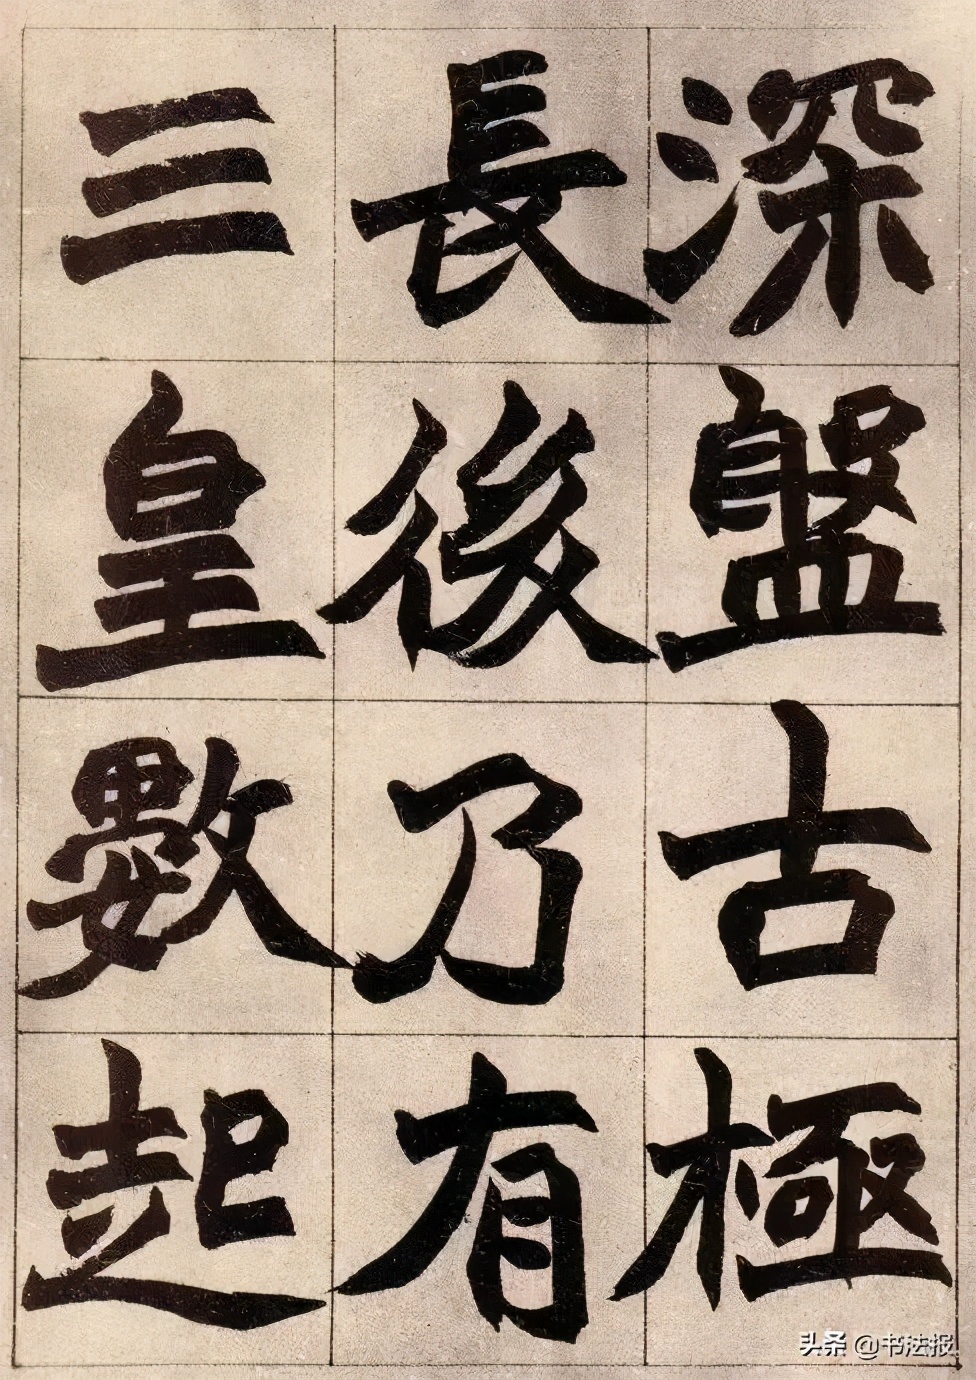 深盤古極
長後乃有
三皇數起
头条 @书法报